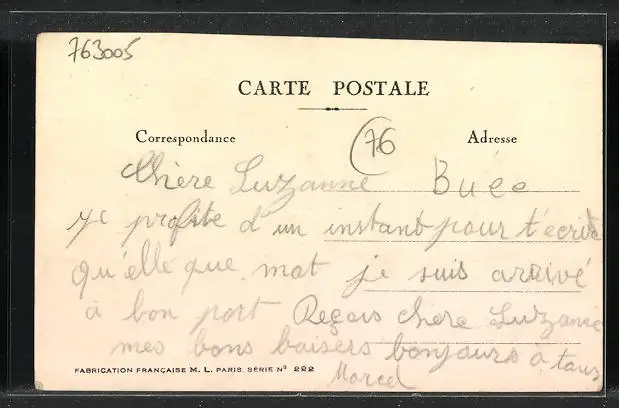 763005
CARTE POSTALE
Correspondance
76
Adresse
Chère Suzanne Buée
Je profite d'un instant pour t'écrire
qu'elle que mot je suis arrivé
à bon port Reçois chere Suzanne
mes bons baisers bonjours a tous
Marcel
FABRICATION FRANÇAISE M. L. PARIS. SÉRIE Nº 222